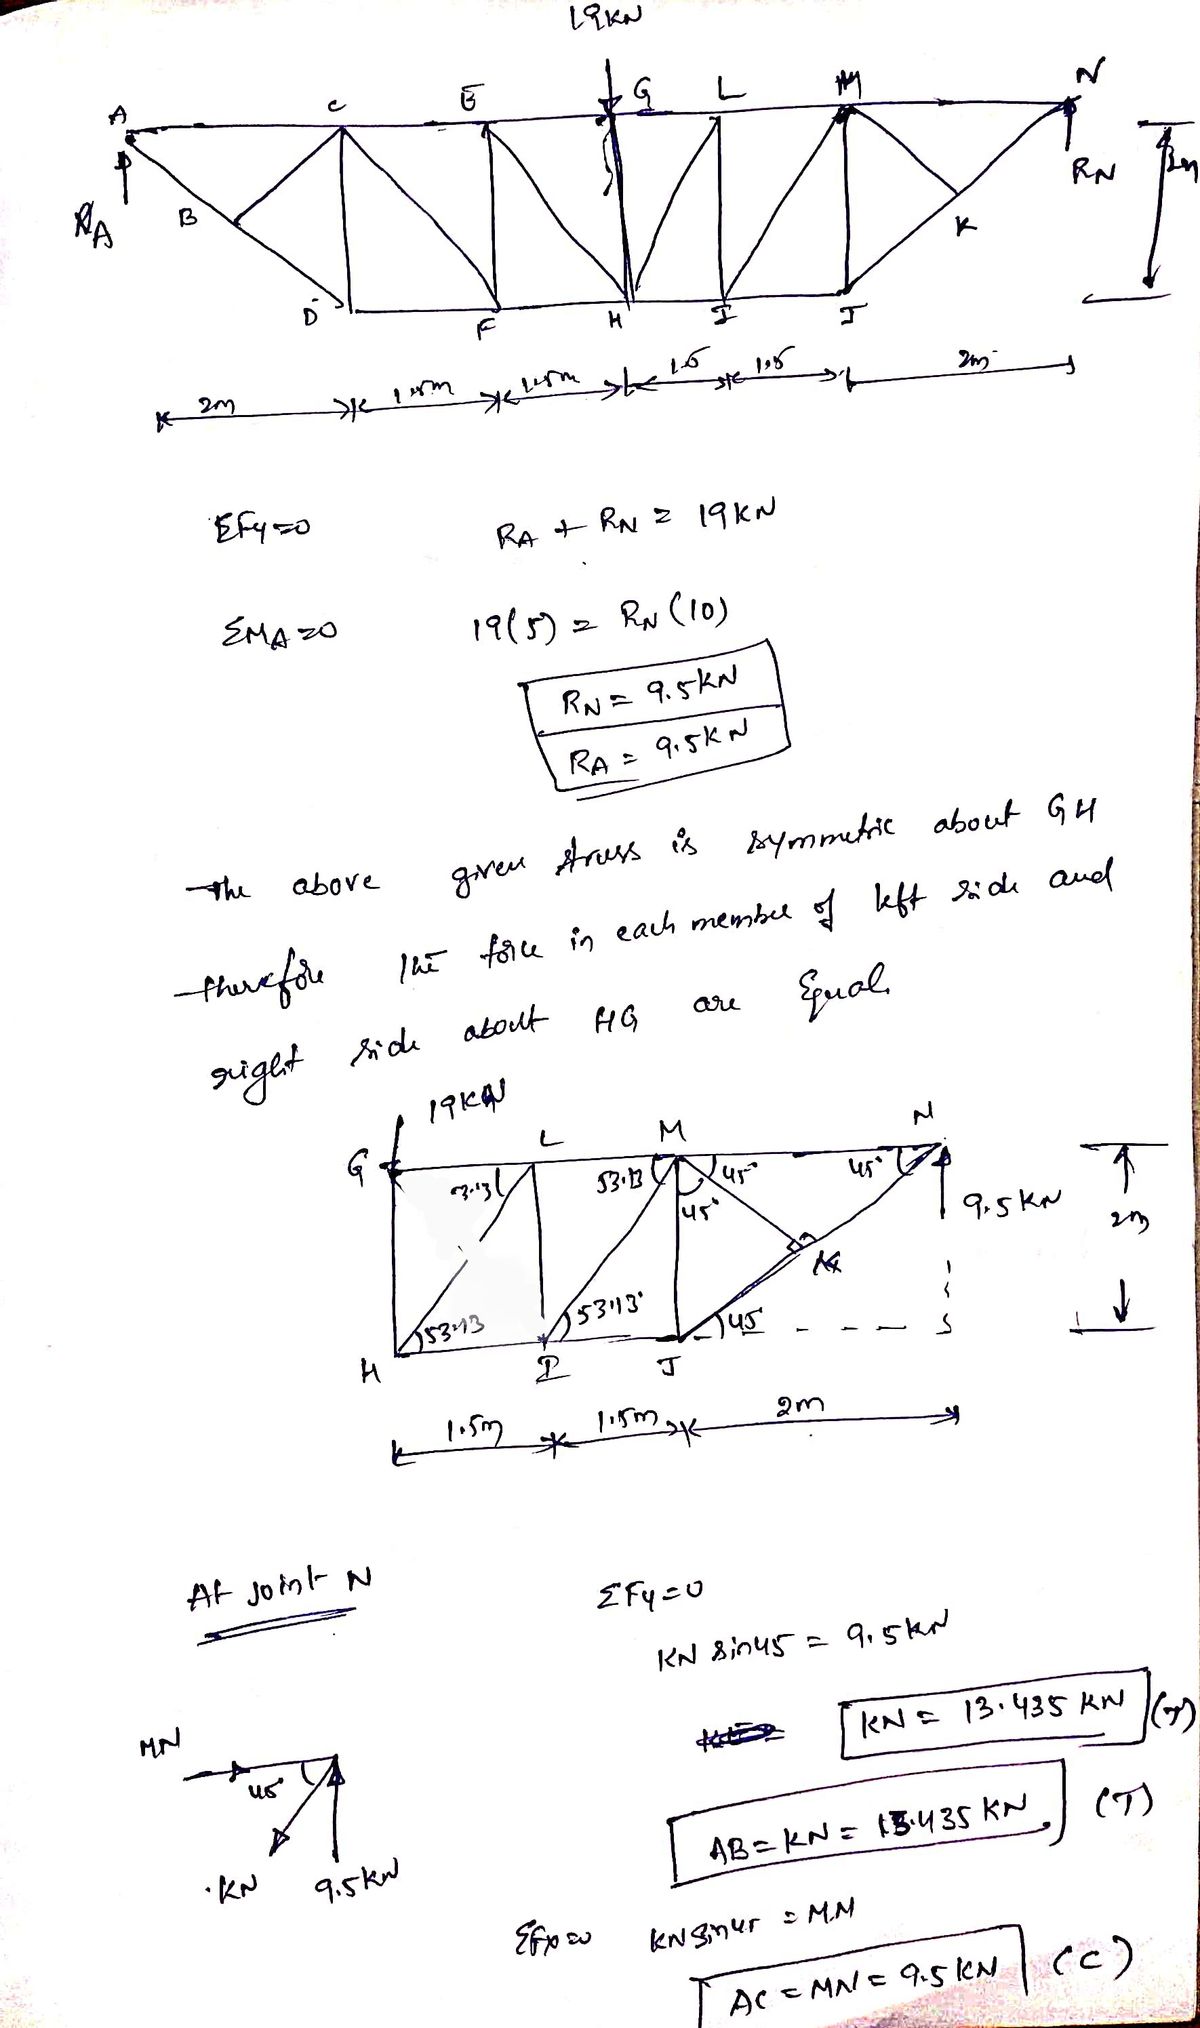 19KN
A C E G L M N
RA B K RN 2m
D F H I J
2m 1.5m 1.5m 1.5 1.5 2m
ΣFy=0 RA + RN = 19KN
ΣMA=0 19(5) = RN (10)
RN = 9.5KN
RA = 9.5KN
The above given truss is symmetric about GH
therefore the force in each member of left side and
right side about HG are Equal.
19KN
G L M N
53.13 45° 45° 9.5KN
45° 2m
K
53.13 53.13° 45
H I J
1.5m 1.5m 2m
At Joint N ΣFy=0
KN sin45 = 9.5KN
KN = 13.435 KN (T)
MN
45°
AB = KN = 13.435 KN (T)
KN 9.5KN
ΣFx=0 KN sin45 = MN
AC = MN = 9.5KN (C)